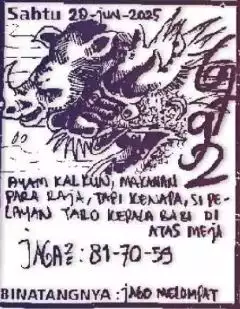 Sabtu 28-JUN-2025
AYAM KALKUN, MAKANAN
PARA RAJA, TAPI KENAPA, SI PE-
LAYAN TARO KEPALA BABI DI
ATAS MEJA
JAGA²: 81-70-59
BINATANGNYA : JAGO MELOMPAT